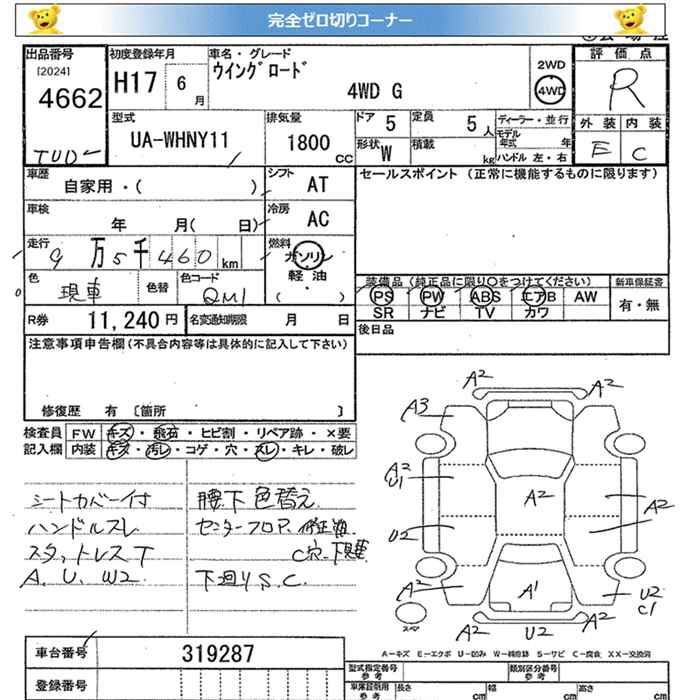 完全ゼロ切りコーナー
出品番号
[2024]
4662
初度登録年月
H17 6月
車名・グレード
ウイングロード
4WD G
2WD
4WD
評価点
R
型式
UA-WHNY11
排気量
1800 CC
ドア 5
定員 5人
形状 W
積載 kg
ディーラー・並行
モデル年式 年
ハンドル 左・右
外装 内装
E C
車歴
自家用・( )
シフト AT
セールスポイント (正常に機能するものに限ります)
車検
年 月( 日)
冷房 AC
走行
9万5千460 km
燃料
ガソリン
軽油
( ・ )
色
現車
色替
色コード
QM1
装備品 (純正品に限り○をつけてください)
PS PW ABS エアB AW
SR ナビ TV カワ
新車保証書
有・無
R券 11,240円
名変通知期限 月 日
後日品
注意事項申告欄(不具合内容等は具体的に記入して下さい)
修復歴 有 〔箇所 〕
検査員 FW キズ・飛石・ヒビ割・リペア跡・×要
記入欄 内装 キズ・汚レ・コゲ・穴・スレ・キレ・破レ
シートカバー付
ハンドルスレ
スタットレスT
A. U. W2
腰下色替え
センターフロア
C穴
下廻りS.C.
A2
A2
A3
A2
U1
A2
A2
U2
A2
A1
U2
C1
スペア
A2
U2
A2
A-キズ E-エクボ U-凹み W-補修跡 S-サビ C-腐食 XX-交換済
車台番号 319287
登録番号
型式指定番号
参考
類別区分番号
参考
車庫証明用
参考
長さ cm
幅 cm
高さ cm